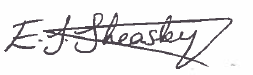 E. J. Sheasby